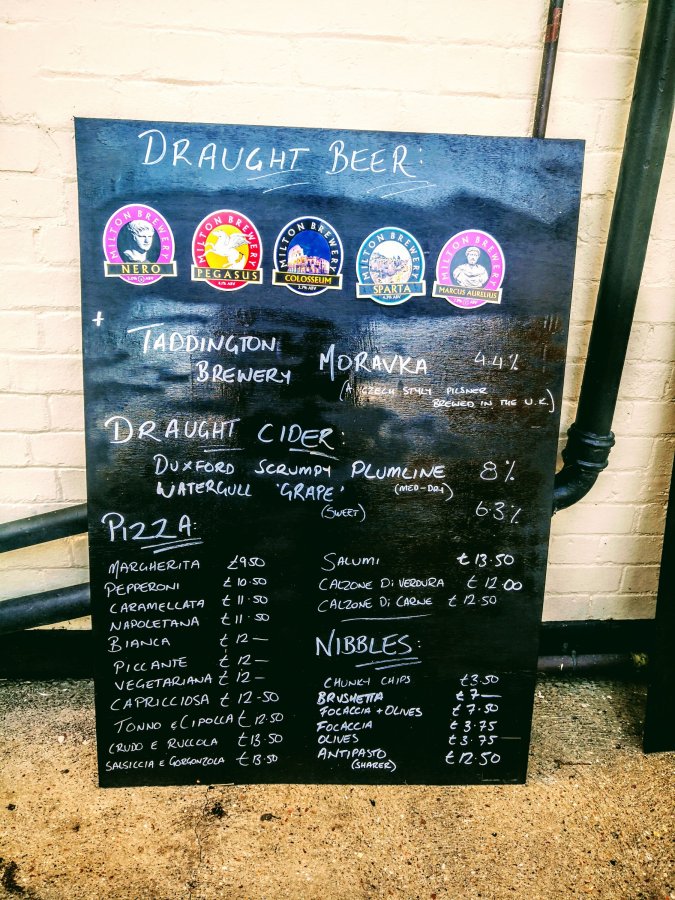 DRAUGHT BEER:
MILTON BREWERY
NERO
MILTON BREWERY
PEGASUS
MILTON BREWERY
COLOSSEUM
MILTON BREWERY
SPARTA
MILTON BREWERY
MARCUS AURELIUS
+
TADDINGTON
BREWERY MORAVKA 4.4%
(A CZECH STYLY PILSNER
BREWED IN THE U.K)
DRAUGHT CIDER:
DUXFORD SCRUMPY PLUMLINE 8%
(MED-DRY)
WATERGULL 'GRAPE' 6.3%
(SWEET)
PIZZA:
MARGHERITA £9.50
PEPPERONI £10.50
CARAMELLATA £11.50
NAPOLETANA £11.50
BIANCA £12—
PICCANTE £12—
VEGETARIANA £12—
CAPRICCIOSA £12.50
TONNO E CIPOLLA £12.50
CRUDO E RUCCOLA £13.50
SALSICCIA E GORGONZOLA £13.50
SALUMI £13.50
CALZONE DI VERDURA £12.00
CALZONE DI CARNE £12.50
NIBBLES:
CHUNKY CHIPS £3.50
BRUSHETTA £7—
FOCACCIA + OLIVES £7.50
FOCACCIA £3.75
OLIVES £3.75
ANTIPASTO £12.50
(SHARER)